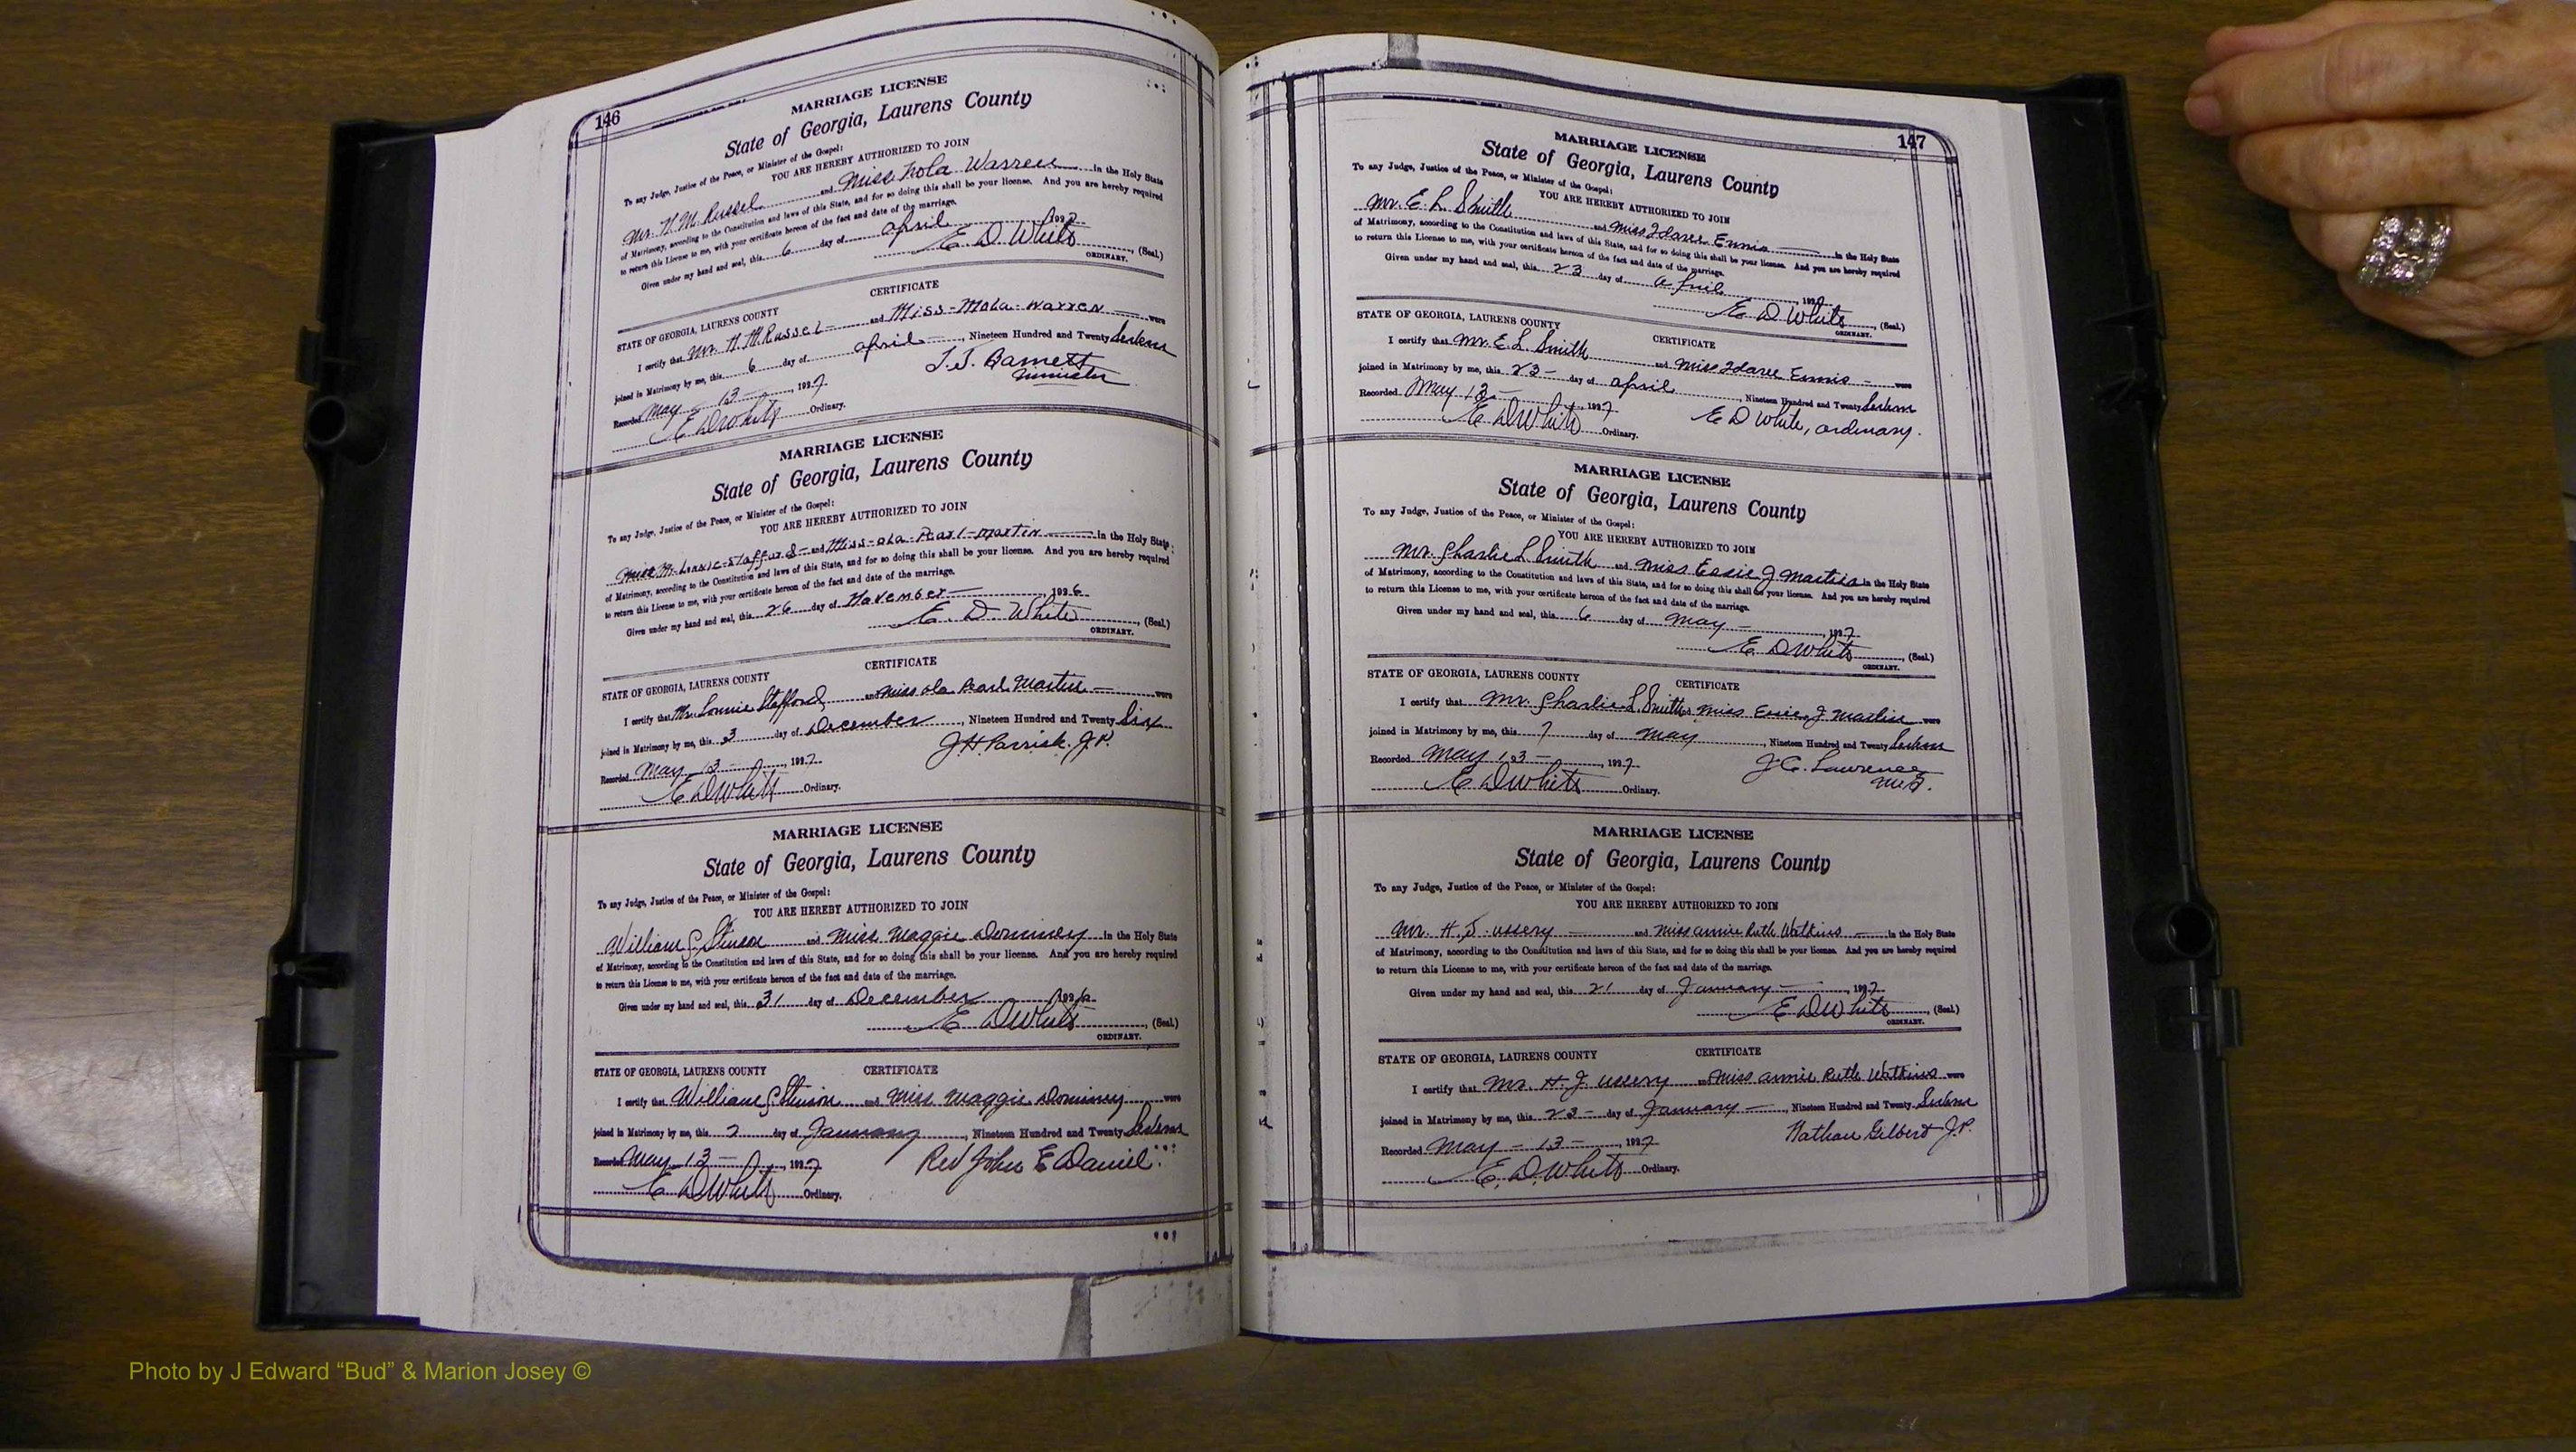 146
MARRIAGE LICENSE
State of Georgia, Laurens County
To any Judge, Justice of the Peace, or Minister of the Gospel:
YOU ARE HEREBY AUTHORIZED TO JOIN
Mr. H. M. Russel and Miss Warren in the Holy State
of Matrimony, according to the Constitution and laws of this State, and for so doing this shall be your license. And you are hereby required
to return this License to me, with your certificate hereon of the fact and date of the marriage.
Given under my hand and seal, this 6 day of april 1927
E. D. White (Seal.)
ORDINARY.
CERTIFICATE
STATE OF GEORGIA, LAURENS COUNTY
I certify that Mr. H M Russel and Miss Warren were
joined in Matrimony by me, this 6 day of april, Nineteen Hundred and Twenty
Recorded May 13 1927
Barnett
Minister
E D White Ordinary.
MARRIAGE LICENSE
State of Georgia, Laurens County
To any Judge, Justice of the Peace, or Minister of the Gospel:
YOU ARE HEREBY AUTHORIZED TO JOIN
Stafford and Miss Ola Pearl Martin in the Holy State
of Matrimony, according to the Constitution and laws of this State, and for so doing this shall be your license. And you are hereby required
to return this License to me, with your certificate hereon of the fact and date of the marriage.
Given under my hand and seal, this 26 day of November 1926
E. D. White (Seal.)
ORDINARY.
CERTIFICATE
STATE OF GEORGIA, LAURENS COUNTY
I certify that Mr. Lonnie Stafford and Miss Ola Pearl Martin were
joined in Matrimony by me, this 3 day of December, Nineteen Hundred and Twenty Six
Recorded May 13 1927
J H Parrish J.P.
E D White Ordinary.
MARRIAGE LICENSE
State of Georgia, Laurens County
To any Judge, Justice of the Peace, or Minister of the Gospel:
YOU ARE HEREBY AUTHORIZED TO JOIN
William S Stinson and Miss Maggie Dominey in the Holy State
of Matrimony, according to the Constitution and laws of this State, and for so doing this shall be your license. And you are hereby required
to return this License to me, with your certificate hereon of the fact and date of the marriage.
Given under my hand and seal, this 31 day of December 1926
E D White (Seal.)
ORDINARY.
STATE OF GEORGIA, LAURENS COUNTY CERTIFICATE
I certify that William S Stinson and Miss Maggie Dominey were
joined in Matrimony by me, this 2 day of January, Nineteen Hundred and Twenty
Recorded May 13 1927
Rev John E Daniel
E D White Ordinary.
147
MARRIAGE LICENSE
State of Georgia, Laurens County
To any Judge, Justice of the Peace, or Minister of the Gospel:
YOU ARE HEREBY AUTHORIZED TO JOIN
Mr. E. L. Smith and Miss Ennis in the Holy State
of Matrimony, according to the Constitution and laws of this State, and for so doing this shall be your license. And you are hereby required
to return this License to me, with your certificate hereon of the fact and date of the marriage.
Given under my hand and seal, this 23 day of april, 1927
E D White (Seal.)
ORDINARY.
STATE OF GEORGIA, LAURENS COUNTY CERTIFICATE
I certify that Mr. E. L. Smith and Miss Ennis were
joined in Matrimony by me, this 23 day of april, Nineteen Hundred and Twenty
Recorded May 13 1927
E D White, ordinary.
E D White Ordinary.
MARRIAGE LICENSE
State of Georgia, Laurens County
To any Judge, Justice of the Peace, or Minister of the Gospel:
YOU ARE HEREBY AUTHORIZED TO JOIN
Mr. Charlie L Smith and Miss Essie J Martin in the Holy State
of Matrimony, according to the Constitution and laws of this State, and for so doing this shall be your license. And you are hereby required
to return this License to me, with your certificate hereon of the fact and date of the marriage.
Given under my hand and seal, this 6 day of May, 1927
E D White (Seal.)
ORDINARY.
STATE OF GEORGIA, LAURENS COUNTY CERTIFICATE
I certify that Mr. Charlie L Smith Miss Essie J Martin were
joined in Matrimony by me, this 7 day of May, Nineteen Hundred and Twenty
Recorded May 13 1927
J C. Lawrence
E D White Ordinary.
MARRIAGE LICENSE
State of Georgia, Laurens County
To any Judge, Justice of the Peace, or Minister of the Gospel:
YOU ARE HEREBY AUTHORIZED TO JOIN
Mr. H. J. Ussery and Miss Annie Ruth Watkins in the Holy State
of Matrimony, according to the Constitution and laws of this State, and for so doing this shall be your license. And you are hereby required
to return this License to me, with your certificate hereon of the fact and date of the marriage.
Given under my hand and seal, this 21 day of January, 1927
E D White (Seal.)
ORDINARY.
STATE OF GEORGIA, LAURENS COUNTY CERTIFICATE
I certify that Mr. H. J. Ussery and Miss Annie Ruth Watkins were
joined in Matrimony by me, this 23 day of January, Nineteen Hundred and Twenty
Recorded May 13 1927
Nathan Gilbert J.P.
E. D. White Ordinary.
Photo by J Edward “Bud” & Marion Josey ©